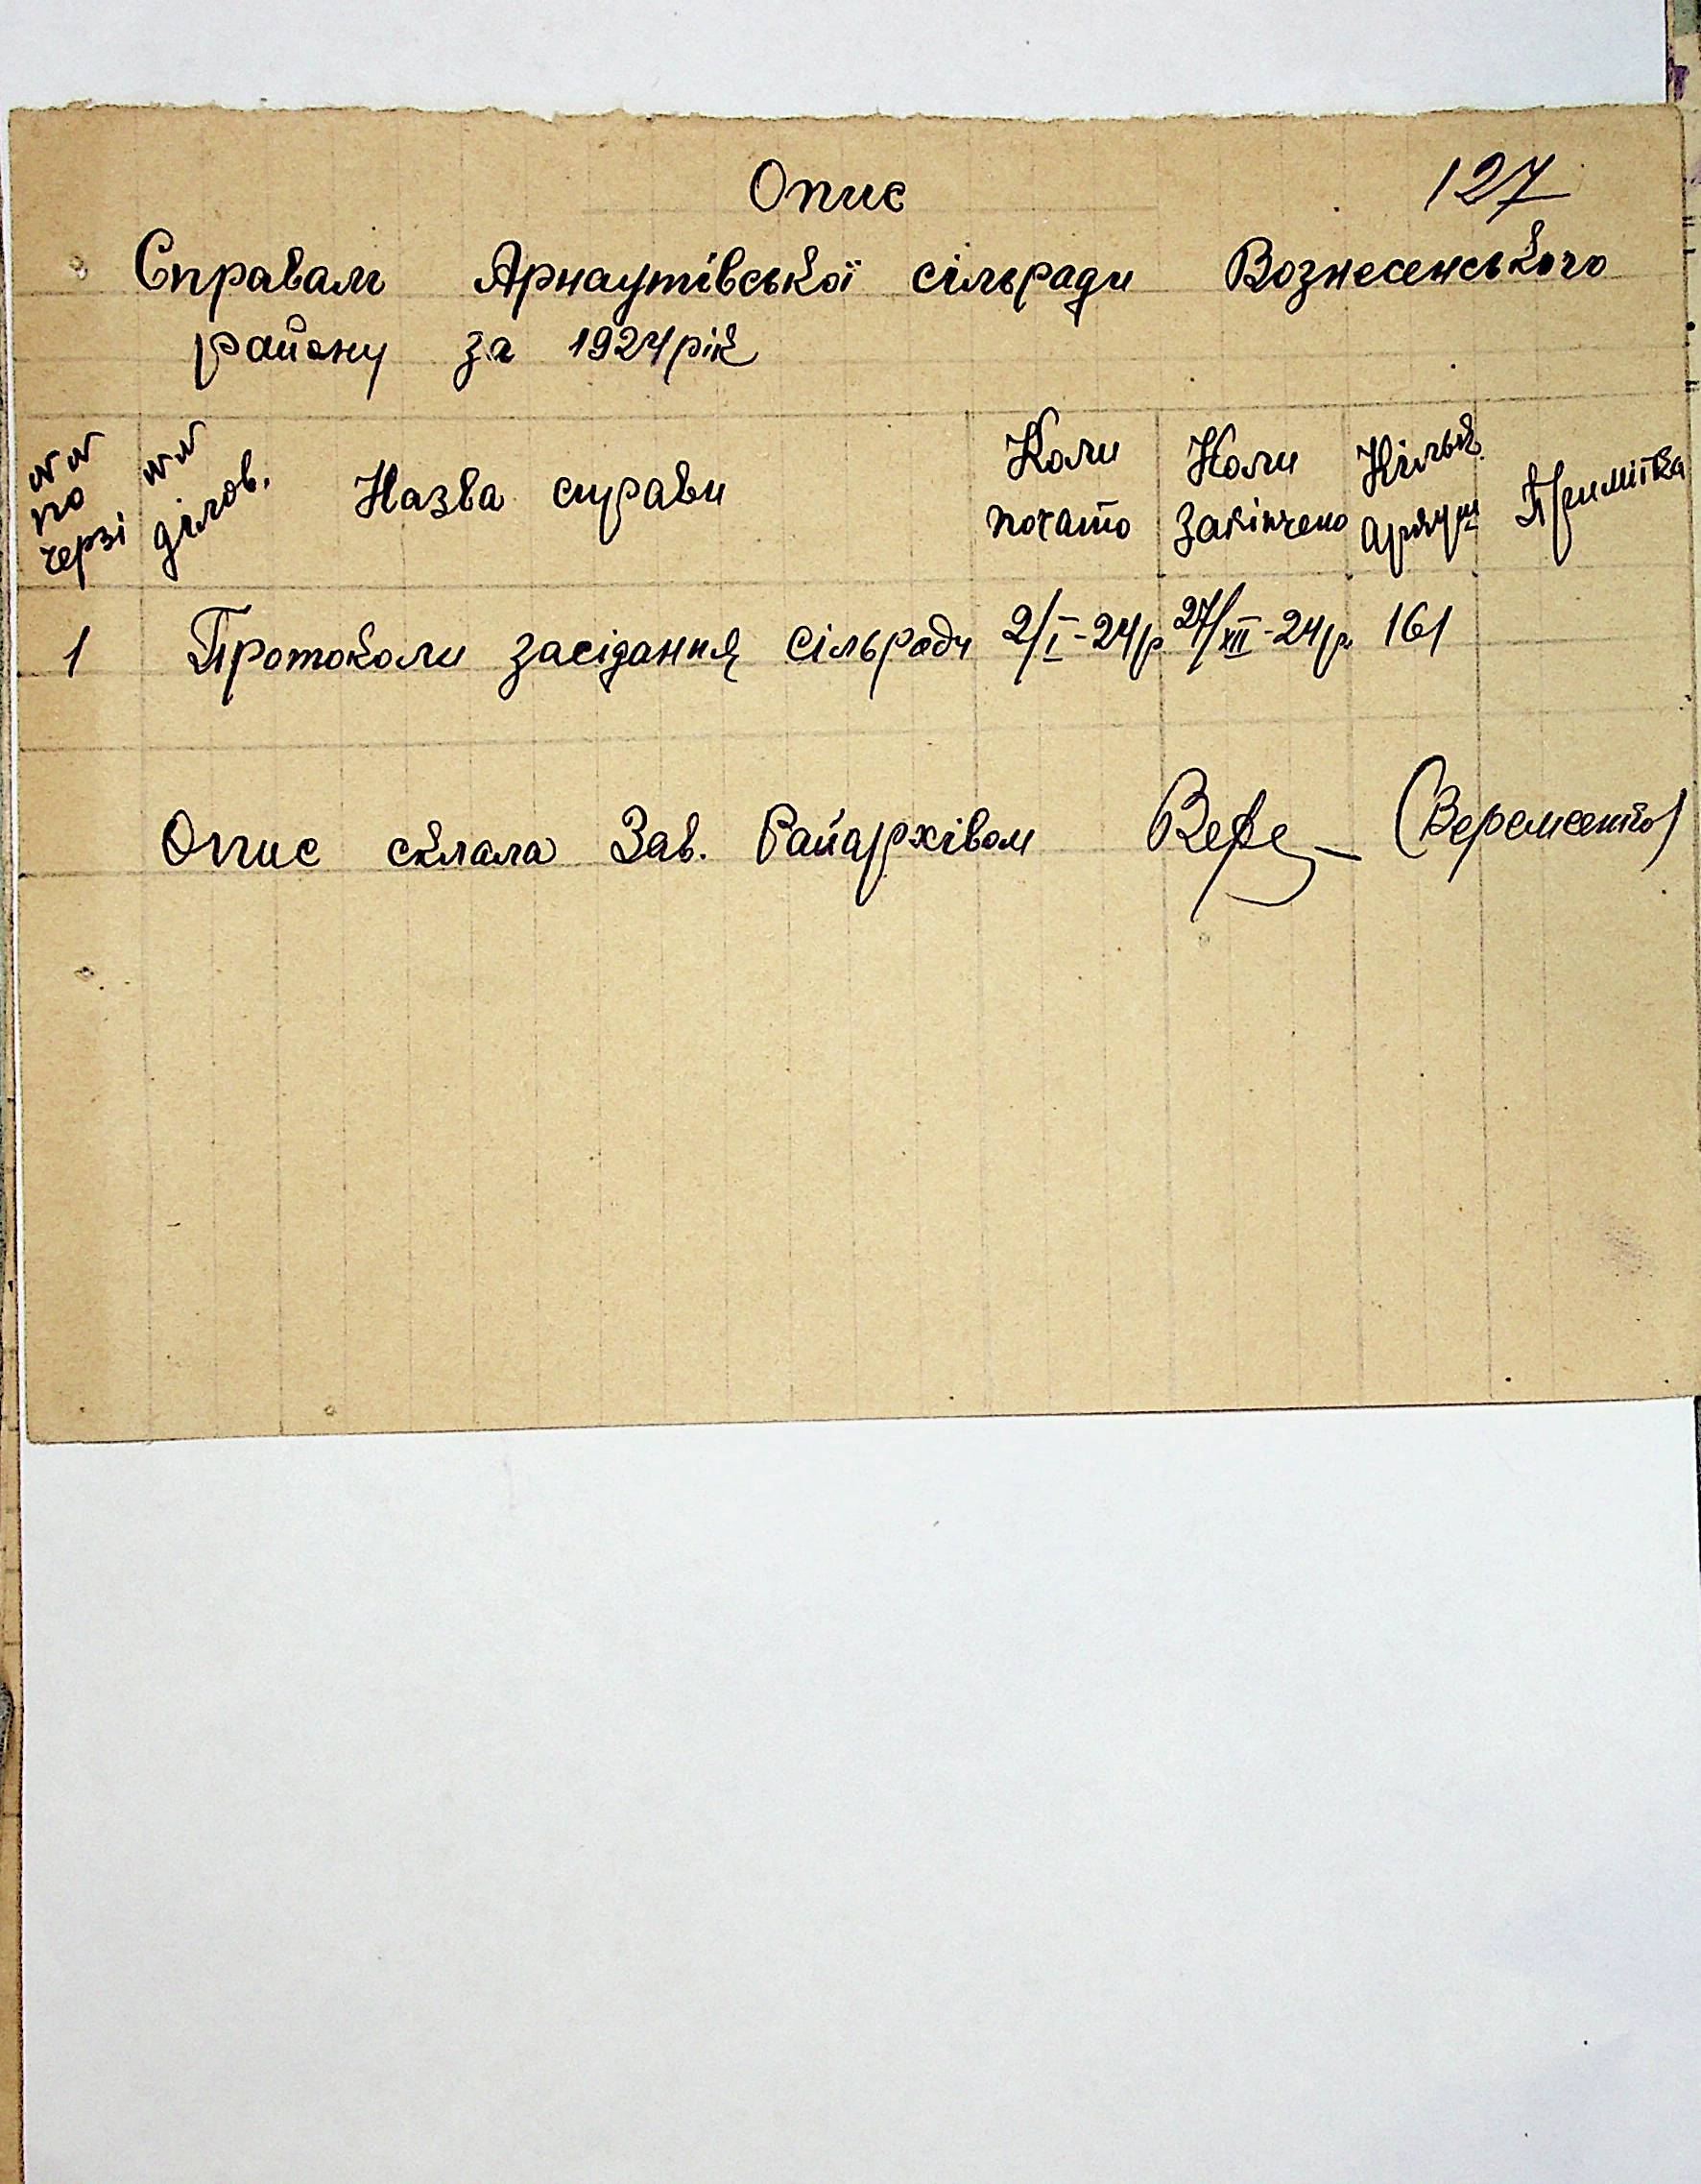 Опис
127
Справам Арнаутівської сільради Вознесенського
району за 1924 рік
№№ по черзі | №№ділов. | Назва справи | Коли почато | Коли закінчено | Кільк. аркуш | Примітка
1 Протоколи засідання сільради 2/I-24р 27/XII-24р. 161
Опис склала Зав. Райархівом (Веременко)